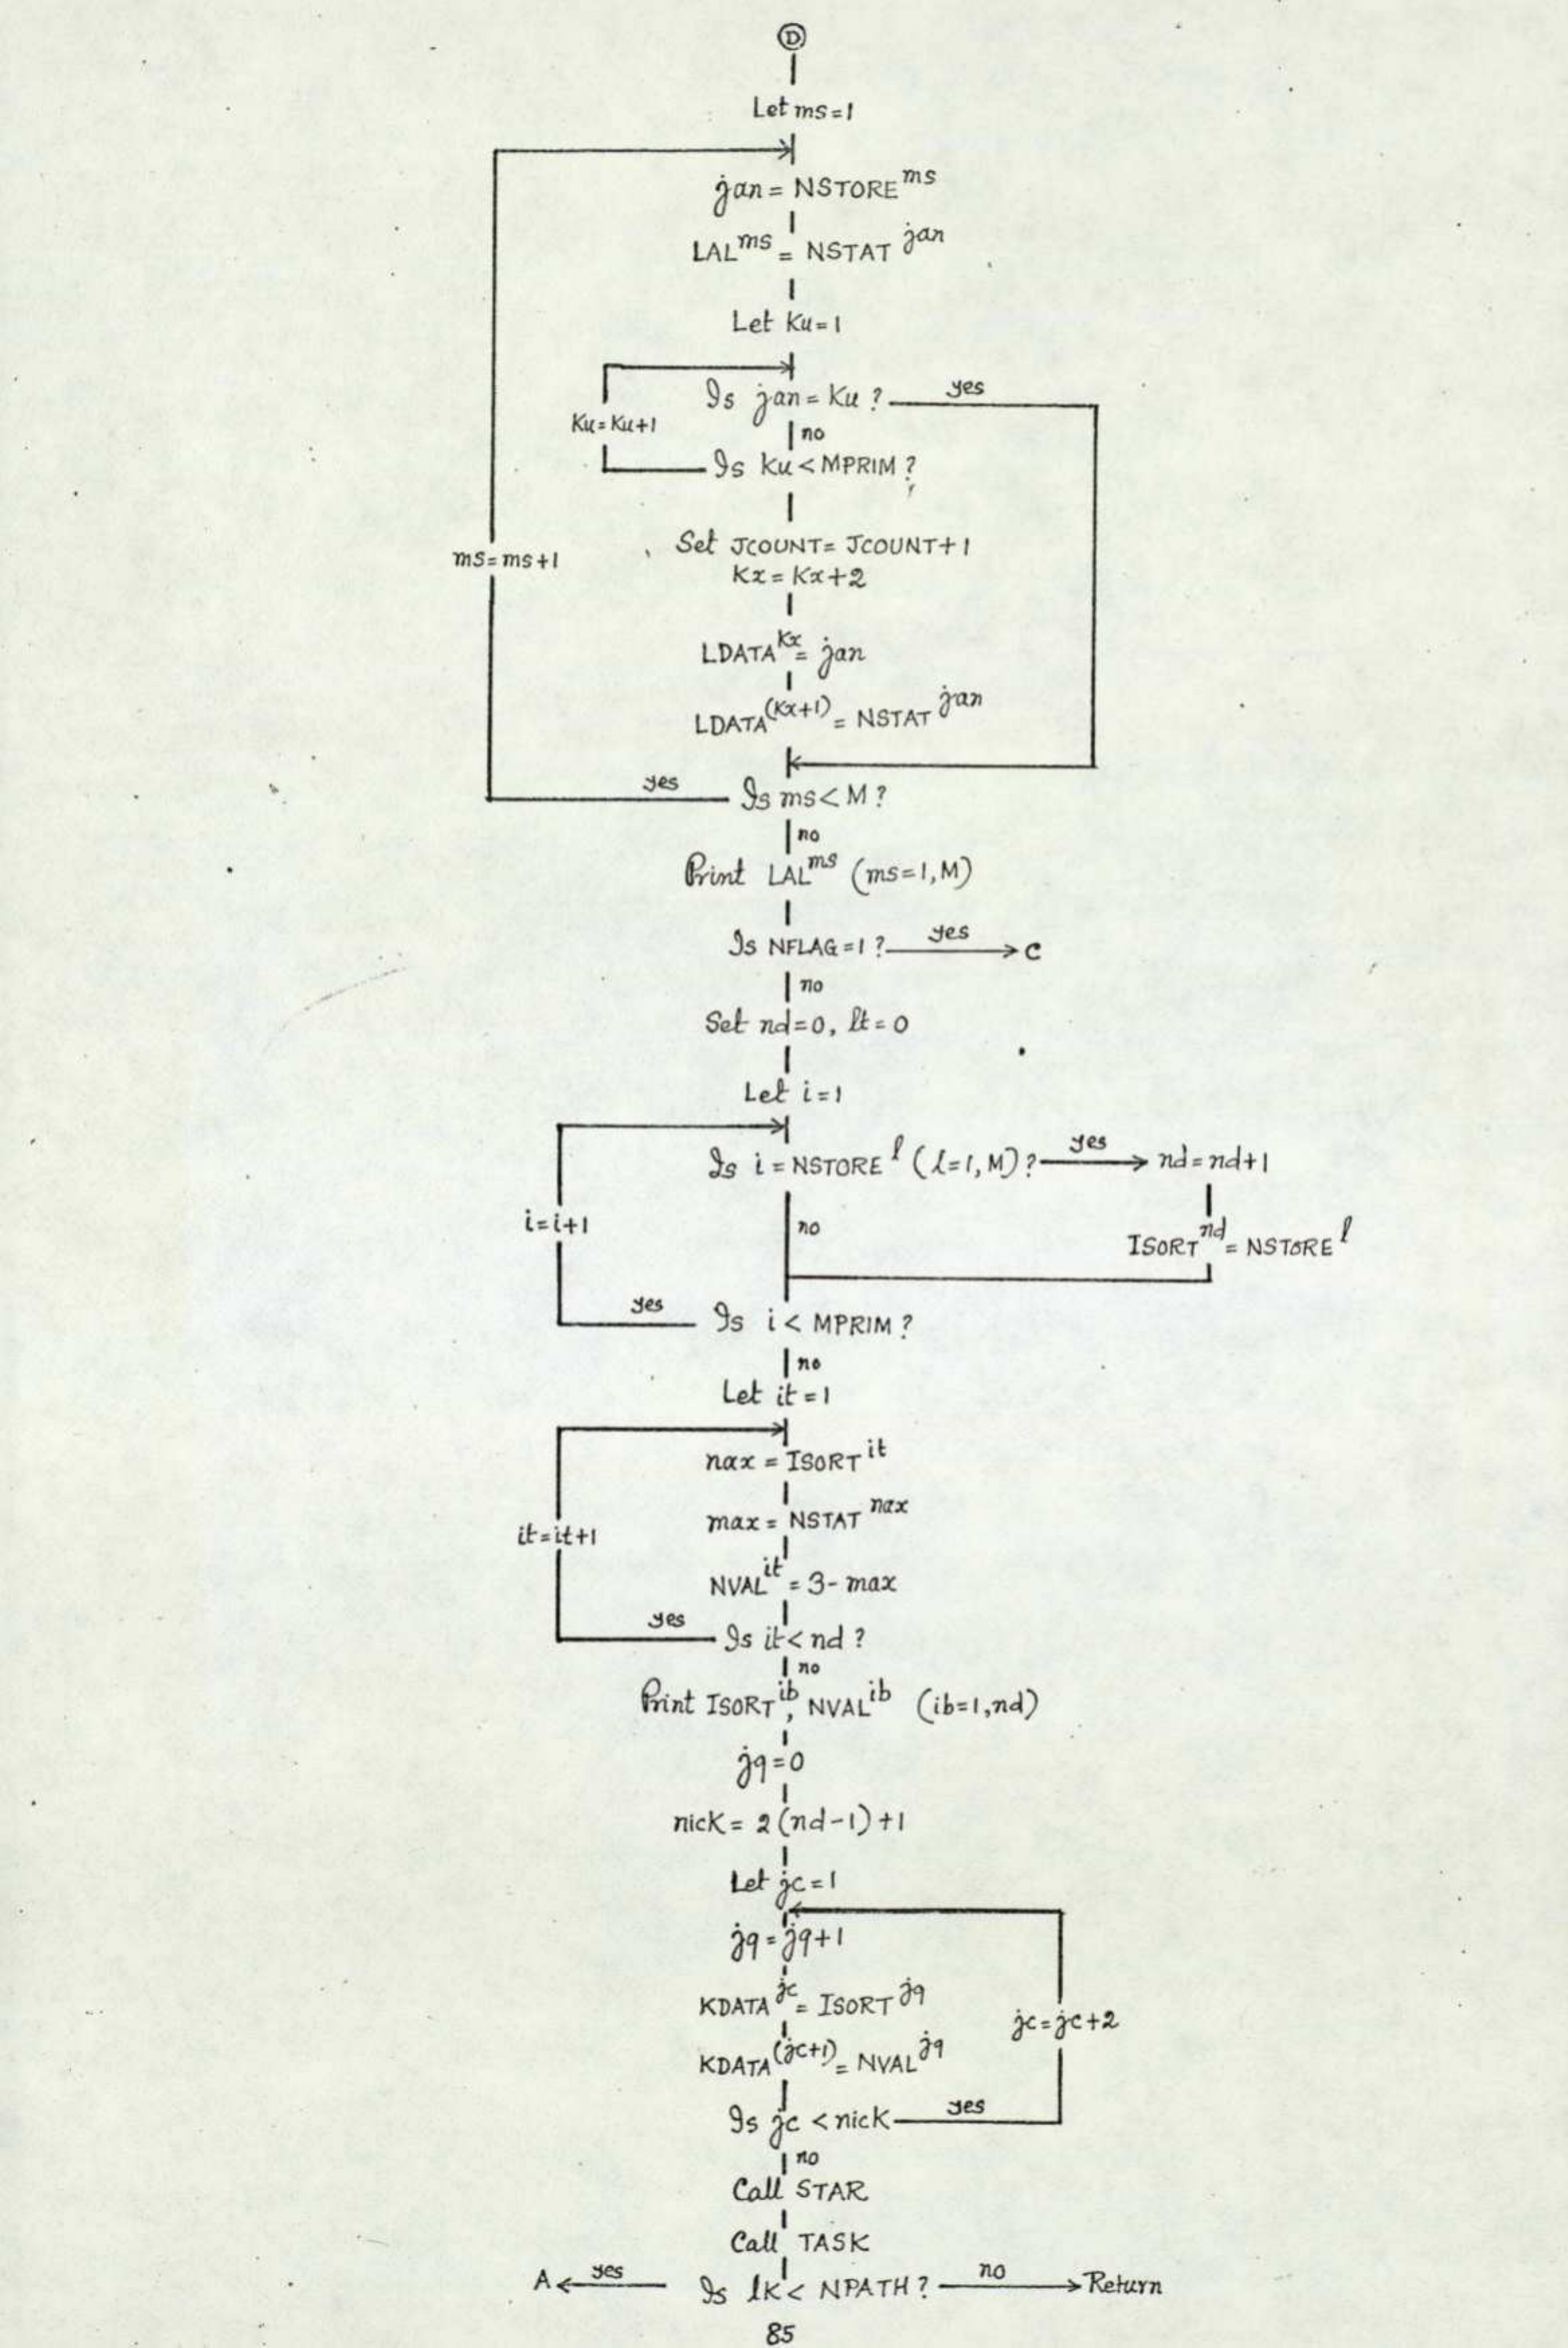 D
Let ms=1
jan = NSTORE^ms
LAL^ms = NSTAT^jan
Let Ku=1
Is jan = Ku ? yes
Ku=Ku+1
no
Is Ku < MPRIM ?
Set JCOUNT= JCOUNT+1
ms=ms+1
Kx = Kx+2
LDATA^Kx = jan
LDATA^(Kx+1) = NSTAT^jan
yes Is ms < M ?
no
Print LAL^ms (ms=1,M)
Is NFLAG=1 ? yes C
no
Set nd=0, lt=0
Let i=1
Is i = NSTORE^l (l=1,M) ? yes nd=nd+1
i=i+1 no
ISORT^nd = NSTORE^l
yes Is i < MPRIM ?
no
Let it=1
nax = ISORT^it
max = NSTAT^nax
it=it+1
NVAL^it = 3- max
yes Is it < nd ?
no
Print ISORT^ib, NVAL^ib (ib=1,nd)
jq=0
nick = 2(nd-1)+1
Let jc=1
jq = jq+1
KDATA^jc = ISORT^jq
jc=jc+2
KDATA^(jc+1) = NVAL^jq
Is jc < nick yes
no
Call STAR
Call TASK
A yes Is lK < NPATH ? no Return
85